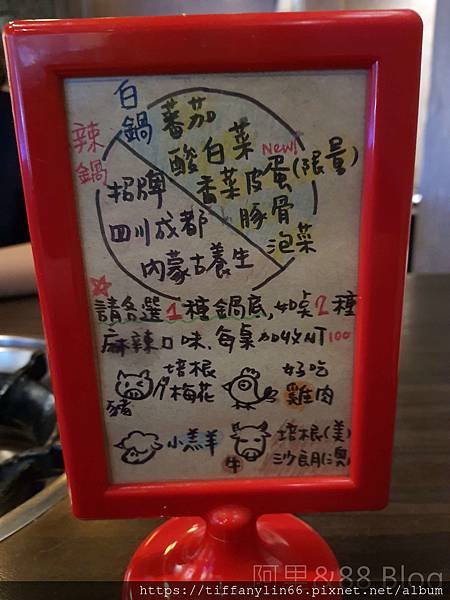 白鍋
蕃茄
酸白菜
New!
香菜皮蛋(限量)
豚骨
泡菜
辣鍋
招牌
四川成都
內蒙古養生
☆
請各選1種鍋底,如桌2種
麻辣口味,每桌加收NT100
豬 培根/梅花
好吃雞肉
小羔羊
牛 培根(美)
沙朗(澳)
阿里&88 Blog
https://tiffanylin66.pixnet.net/album